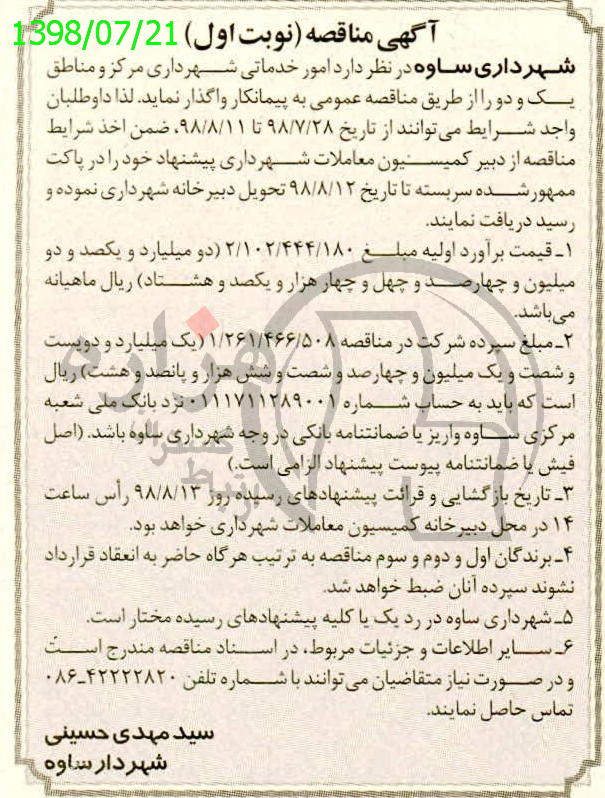 1398/07/21
آگهی مناقصه (نوبت اول)
شهرداری ساوه در نظر دارد امور خدماتی شهرداری مرکز و مناطق
یک و دو را از طریق مناقصه عمومی به پیمانکار واگذار نماید. لذا داوطلبان
واجد شرایط می‌توانند از تاریخ ۹۸/۷/۲۸ تا ۹۸/۸/۱۱، ضمن اخذ شرایط
مناقصه از دبیر کمیسیون معاملات شهرداری پیشنهاد خود را در پاکت
ممهور شده سربسته تا تاریخ ۹۸/۸/۱۲ تحویل دبیرخانه شهرداری نموده و
رسید دریافت نمایند.
۱ـ قیمت برآورد اولیه مبلغ ۲/۱۰۲/۴۴۴/۱۸۰ (دو میلیارد و یکصد و دو
میلیون و چهارصد و چهل و چهار هزار و یکصد و هشتاد) ریال ماهیانه
می‌باشد.
۲ـ مبلغ سپرده شرکت در مناقصه ۱/۲۶۱/۴۶۶/۵۰۸ (یک میلیارد و دویست
و شصت و یک میلیون و چهارصد و شصت و شش هزار و پانصد و هشت) ریال
است که باید به حساب شماره ۰۱۱۱۷۱۱۲۸۹۰۰۱ نزد بانک ملی شعبه
مرکزی ساوه واریز یا ضمانتنامه بانکی در وجه شهرداری ساوه باشد. (اصل
فیش یا ضمانتنامه پیوست پیشنهاد الزامی است.)
۳ـ تاریخ بازگشایی و قرائت پیشنهادهای رسیده روز ۹۸/۸/۱۳ رأس ساعت
۱۴ در محل دبیرخانه کمیسیون معاملات شهرداری خواهد بود.
۴ـ برندگان اول و دوم و سوم مناقصه به ترتیب هرگاه حاضر به انعقاد قرارداد
نشوند سپرده آنان ضبط خواهد شد.
۵ـ شهرداری ساوه در رد یک یا کلیه پیشنهادهای رسیده مختار است.
۶ـ سایر اطلاعات و جزئیات مربوط، در اسناد مناقصه مندرج است
و در صورت نیاز متقاضیان می‌توانند با شماره تلفن ۴۲۲۲۲۸۲۰ـ۰۸۶
تماس حاصل نمایند.
سید مهدی حسینی
شهردار ساوه
هزاره